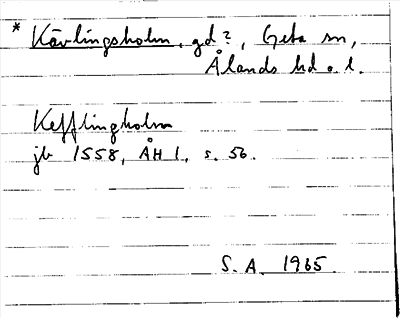 * Kävlingsholm, gd?, Geta sn,
Ålands hd o. l.
Kefflingholm
jb 1558, ÅH 1, s. 56.
S. A. 1965.